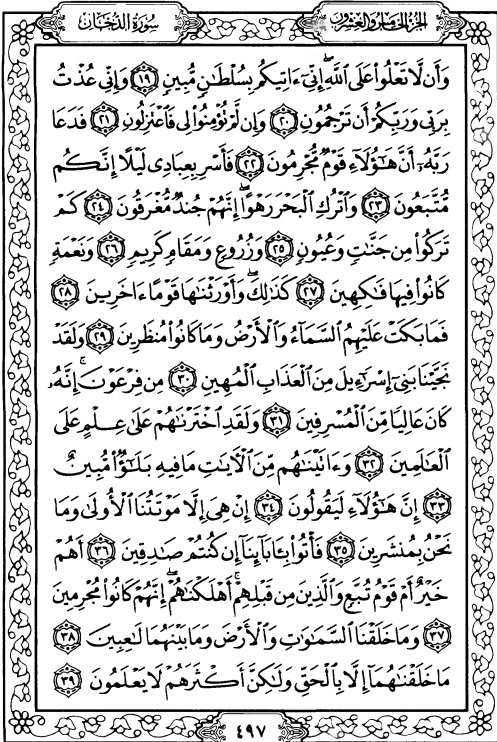 الجزء الخامس والعشرون
سورة الدخان
وَأَن لَّا تَعْلُوا۟ عَلَى ٱللَّهِ ۖ إِنِّىٓ ءَاتِيكُم بِسُلْطَٰنٍ مُّبِينٍ ١٩ وَإِنِّى عُذْتُ
بِرَبِّى وَرَبِّكُمْ أَن تَرْجُمُونِ ٢٠ وَإِن لَّمْ تُؤْمِنُوا۟ لِى فَٱعْتَزِلُونِ ٢١ فَدَعَا
رَبَّهُۥٓ أَنَّ هَٰٓؤُلَآءِ قَوْمٌ مُّجْرِمُونَ ٢٢ فَأَسْرِ بِعِبَادِى لَيْلًا إِنَّكُم
مُّتَّبَعُونَ ٢٣ وَٱتْرُكِ ٱلْبَحْرَ رَهْوًا ۖ إِنَّهُمْ جُندٌ مُّغْرَقُونَ ٢٤ كَمْ
تَرَكُوا۟ مِن جَنَّٰتٍ وَعُيُونٍ ٢٥ وَزُرُوعٍ وَمَقَامٍ كَرِيمٍ ٢٦ وَنَعْمَةٍ
كَانُوا۟ فِيهَا فَٰكِهِينَ ٢٧ كَذَٰلِكَ ۖ وَأَوْرَثْنَٰهَا قَوْمًا ءَاخَرِينَ ٢٨
فَمَا بَكَتْ عَلَيْهِمُ ٱلسَّمَآءُ وَٱلْأَرْضُ وَمَا كَانُوا۟ مُنظَرِينَ ٢٩ وَلَقَدْ
نَجَّيْنَا بَنِىٓ إِسْرَٰٓءِيلَ مِنَ ٱلْعَذَابِ ٱلْمُهِينِ ٣٠ مِن فِرْعَوْنَ ۚ إِنَّهُۥ
كَانَ عَالِيًا مِّنَ ٱلْمُسْرِفِينَ ٣١ وَلَقَدِ ٱخْتَرْنَٰهُمْ عَلَىٰ عِلْمٍ عَلَى
ٱلْعَٰلَمِينَ ٣٢ وَءَاتَيْنَٰهُم مِّنَ ٱلْءَايَٰتِ مَا فِيهِ بَلَٰٓؤٌا۟ مُّبِينٌ
٣٣ إِنَّ هَٰٓؤُلَآءِ لَيَقُولُونَ ٣٤ إِنْ هِىَ إِلَّا مَوْتَتُنَا ٱلْأُولَىٰ وَمَا
نَحْنُ بِمُنشَرِينَ ٣٥ فَأْتُوا۟ بِـَٔابَآئِنَآ إِن كُنتُمْ صَٰدِقِينَ ٣٦ أَهُمْ
خَيْرٌ أَمْ قَوْمُ تُبَّعٍ وَٱلَّذِينَ مِن قَبْلِهِمْ ۚ أَهْلَكْنَٰهُمْ ۖ إِنَّهُمْ كَانُوا۟ مُجْرِمِينَ
٣٧ وَمَا خَلَقْنَا ٱلسَّمَٰوَٰتِ وَٱلْأَرْضَ وَمَا بَيْنَهُمَا لَٰعِبِينَ ٣٨
مَا خَلَقْنَٰهُمَآ إِلَّا بِٱلْحَقِّ وَلَٰكِنَّ أَكْثَرَهُمْ لَا يَعْلَمُونَ ٣٩
٤٩٧